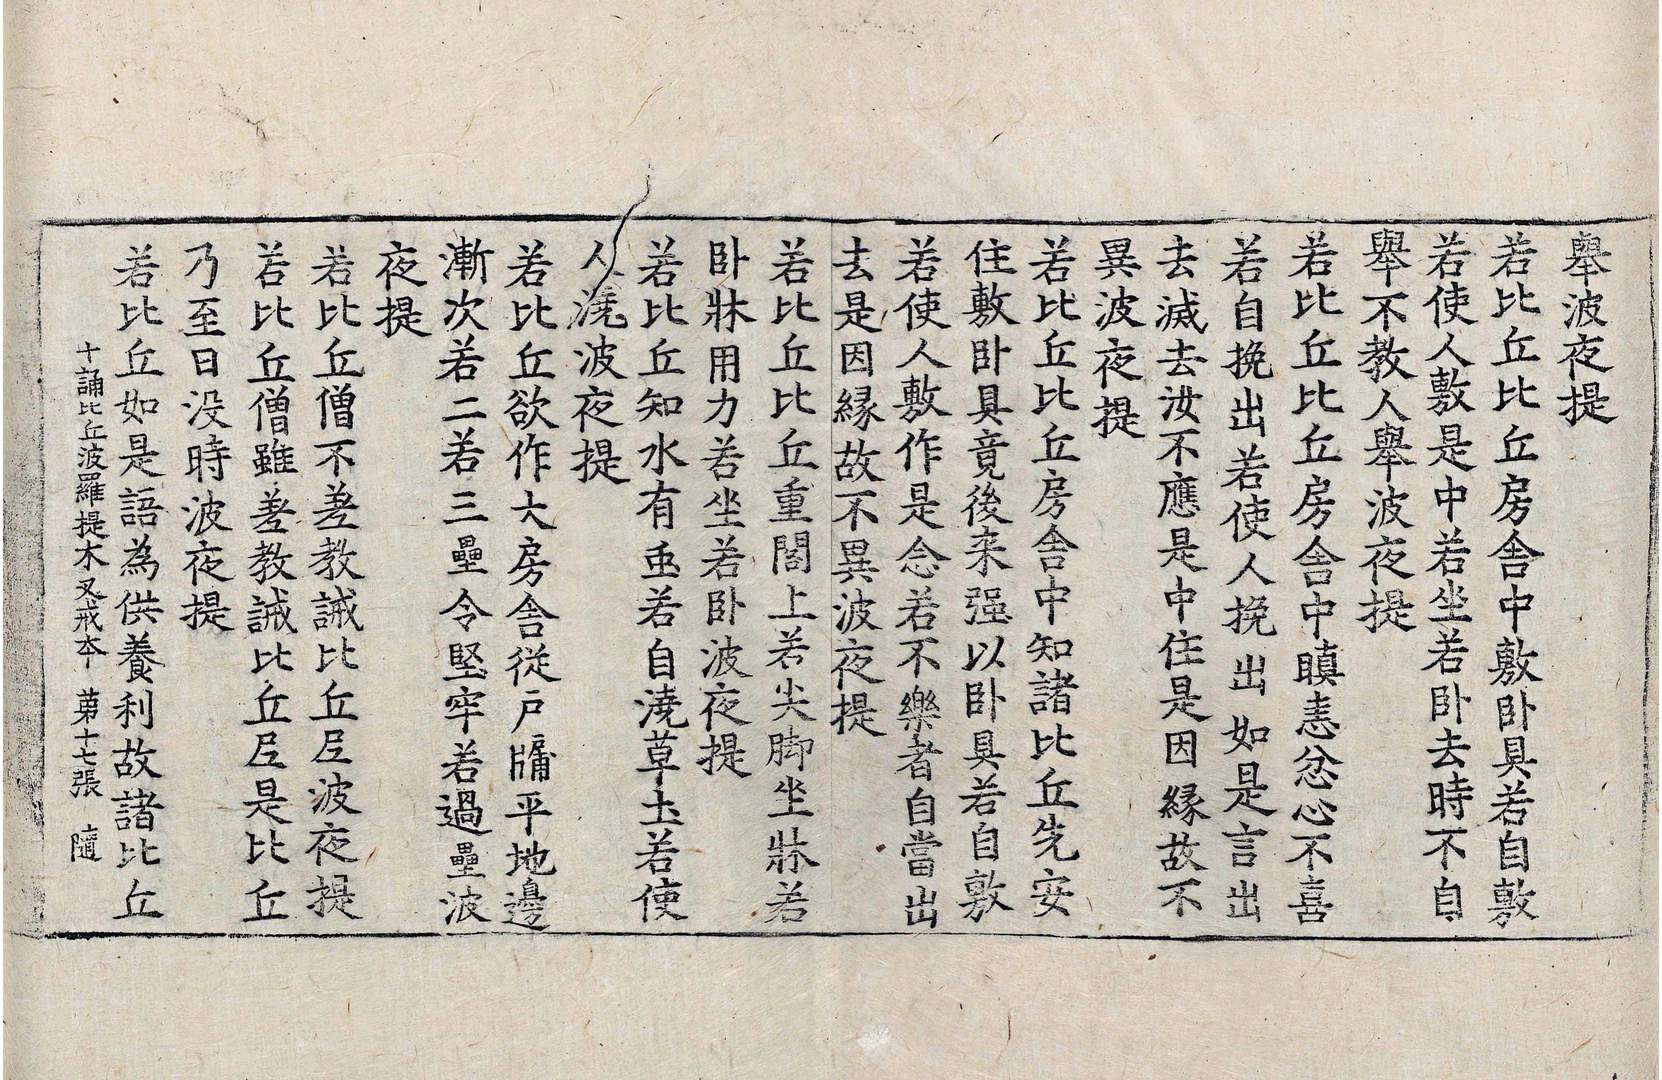 舉波夜提
若比丘比丘房舍中敷卧具若自敷
若使人敷是中若坐若卧去時不自
舉不教人舉波夜提
若比丘比丘房舍中瞋恚忿心不喜
若自挽出若使人挽出如是言出
去滅去汝不應是中住是因緣故不
異波夜提
若比丘比丘房舍中知諸比丘先安
住敷卧具竟後来强以卧具若自敷
若使人敷作是念若不樂者自當出
去是因緣故不異波夜提
若比丘比丘重閣上若尖脚坐牀若
卧牀用力若坐若卧波夜提
若比丘知水有虫若自澆草土若使
人澆波夜提
若比丘欲作大房舍從戶牖平地邊
漸次若二若三壘令堅牢若過壘波
夜提
若比丘僧不差教誡比丘尼波夜提
若比丘僧雖差教誡比丘尼是比丘
乃至日没時波夜提
若比丘如是語為供養利故諸比丘
十誦比丘波羅提木叉戒夲 苐十七張 隨